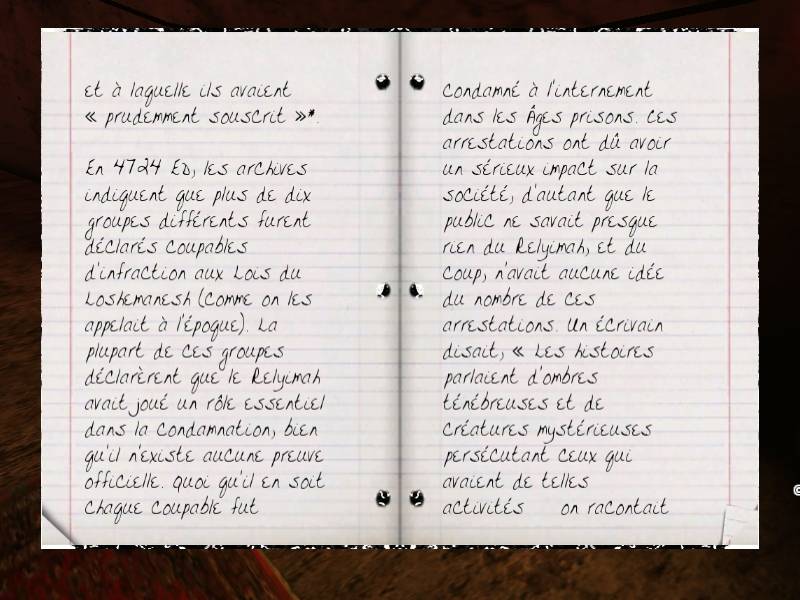 et à laquelle ils avaient
« prudemment souscrit »*.
En 4724 ED, les archives
indiquent que plus de dix
groupes différents furent
déclarés coupables
d'infraction aux Lois du
Loshemanesh (comme on les
appelait à l'époque). La
plupart de ces groupes
déclarèrent que le Relyimah
avait joué un rôle essentiel
dans la condamnation, bien
qu'il n'existe aucune preuve
officielle. Quoi qu'il en soit
chaque coupable fut
condamné à l'internement
dans les Âges prisons. Ces
arrestations ont dû avoir
un sérieux impact sur la
société, d'autant que le
public ne savait presque
rien du Relyimah, et du
coup, n'avait aucune idée
du nombre de ces
arrestations. Un écrivain
disait, « Les histoires
parlaient d'ombres
ténébreuses et de
créatures mystérieuses
persécutant ceux qui
avaient de telles
activités on racontait